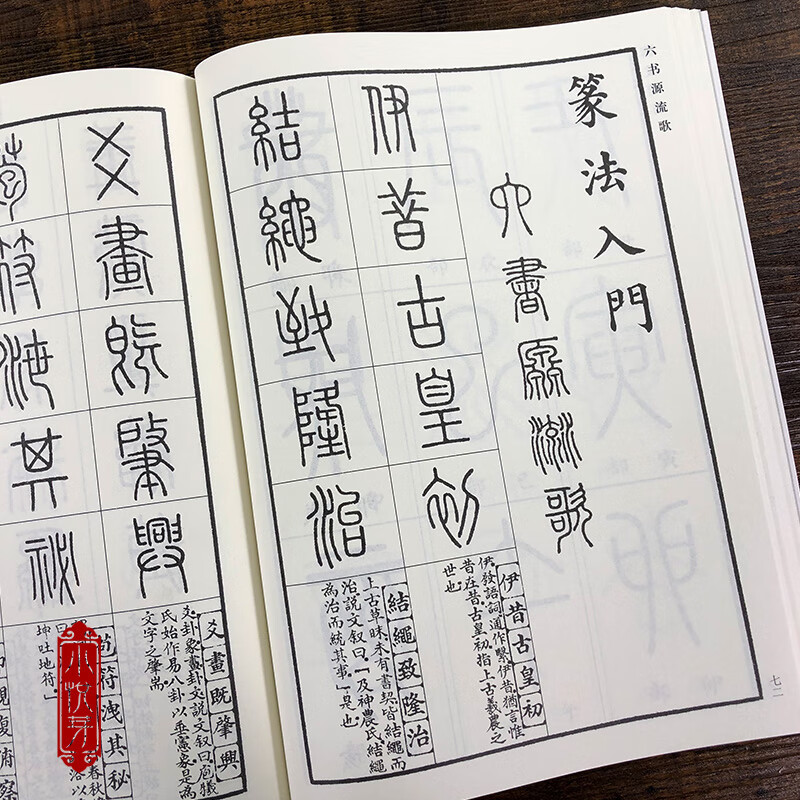 六书源流歌
篆法入門
六書源流歌
伊昔古皇初
伊昔古皇初
伊,發語詞,通作繄。伊昔猶言惟
昔在昔。古皇初,指上古羲農之
世也。
結繩致隆治
結繩致隆治
上古草昧,未有書契,皆結繩而
治。說文叙曰:「及神農氏結繩
為治,而統其事」是也。
七二
爻畫既肇興
爻畫既肇興
爻,卦象;畫,卦文。說文叙曰:庖犧
氏始作易八卦,以垂憲象。是為
文字之肇耑。
苞符洩其祕
苞符洩其秘
春秋
坤吐地符。」